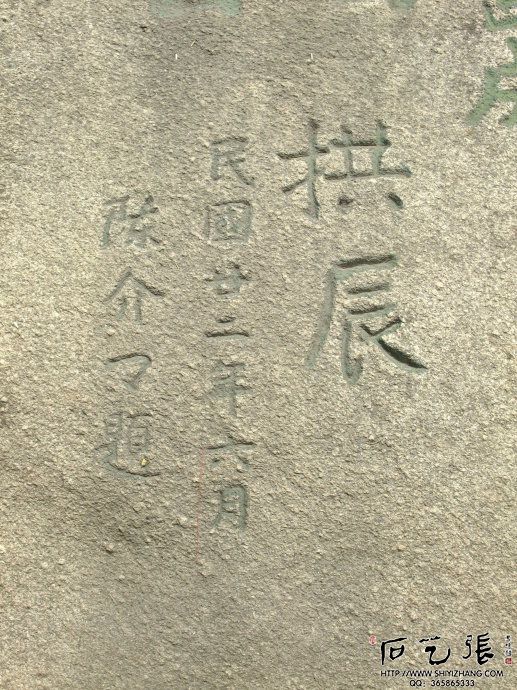 拱辰
民國廿二年六月
陈介卩題
石艺張
HTTP://WWW.SHIYIZHANG.COM
QQ: 365865333